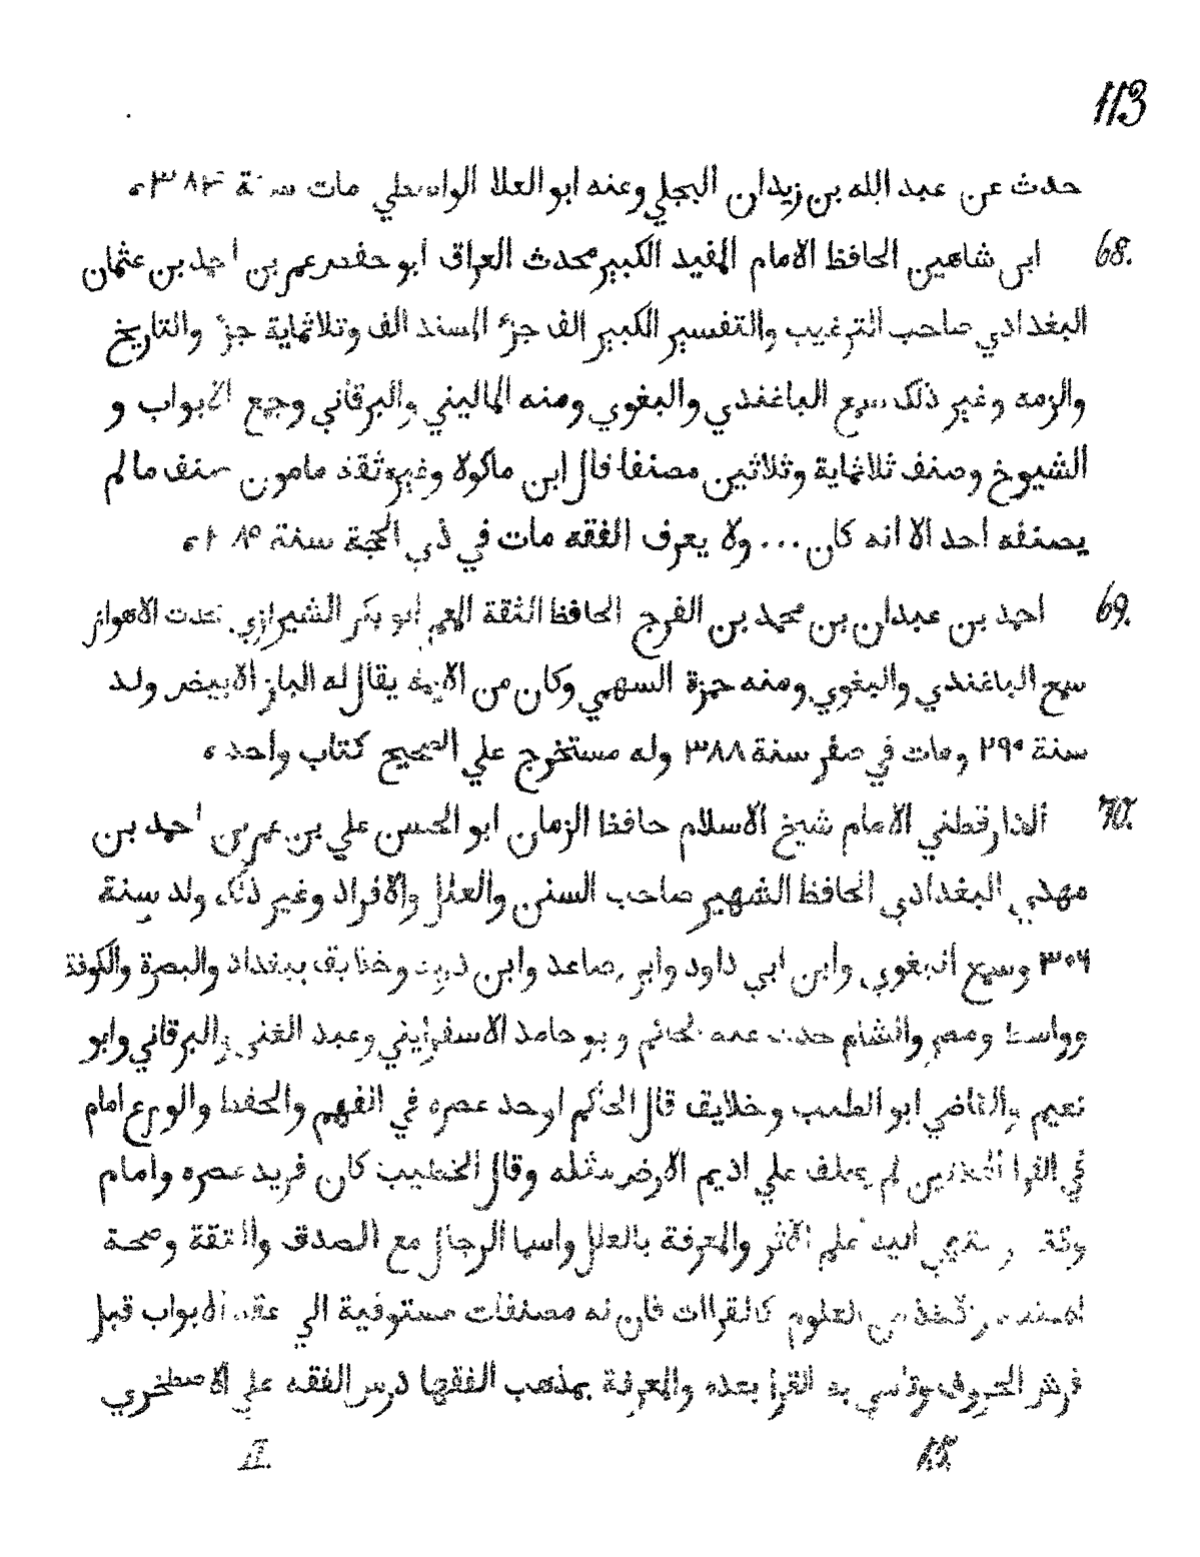 113
حدث عن عبد الله بن زيدان البجلي وعنه ابو العلا الواسطي مات سنة
68. ابن شاهين الحافظ الامام المفيد الكبير محدث العراق ابو حفص عمر بن احمد بن عثمان
البغدادي صاحب الترغيب والتفسير الكبير الف جزء المسند الف وتلاثماية جزء والتاريخ
والزهد وغير ذلك سمع الباغندي والبغوي ومنه الماليني والبرقاني وجمع الابواب و
الشيوخ وصنف ثلاثماية وثلاثين مصنفا قال ابن ماكولا وغيره ثقة مامون صنف ما لم
يصنفه احد الا انه كان... ولا يعرف الفقه مات في ذي الحجة سنة
69. احمد بن عبدان بن محمد بن الفرج الحافظ الثقة المعمر ابو بكر الشيرازي محدث الاهواز
سمع الباغندي والبغوي ومنه حمزة السهمي وكان من الايمة يقال له الباز الابيض ولد
سنة ٢٩٠ ومات في صفر سنة ٣٨٨ وله مستخرج علي الصحيح كتاب واحد ه
70. الدارقطني الامام شيخ الاسلام حافظ الزمان ابو الحسن علي بن عمر بن احمد بن
مهدي البغدادي الحافظ الشهير صاحب السنن والعلل والافراد وغير ذلك ولد سنة
٣٠٦ وسمع البغوي وابن ابي داود وابن صاعد وابن دريد وخلايق ببغداد والبصرة والكوفة
وواسط ومصر والشام حدث عنه الحاكم وبو حامد الاسفرايني وعبد الغني والبرقاني وابو
نعيم والقاضي ابو الطيب وخلايق قال الحاكم اوحد عصره في الفهم والحفظ والورع امام
في القرا لم يخلف علي اديم الارض مثله وقال الخطيب كان فريد عصره وامام
وقته و انتهي اليه علم الاثر والمعرفة بالعلل واسما الرجال مع الصدق والثقة وصحة
من العلوم كالقراات فان له مصنفات مستوفية الي عقد الابواب قبل
فرش الحروف وتاسي به القرا بعده والمعرفة بمذهب الفقها درس الفقه علي الاصطخري
15. II.